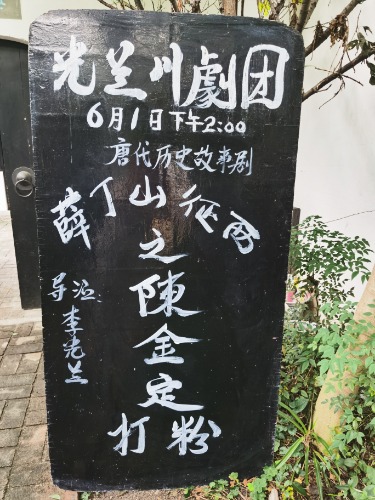 光兰川劇团
6月1日下午2:00
唐代历史故事剧
薛丁山征西
之陳金定
打粉
导演:李光兰